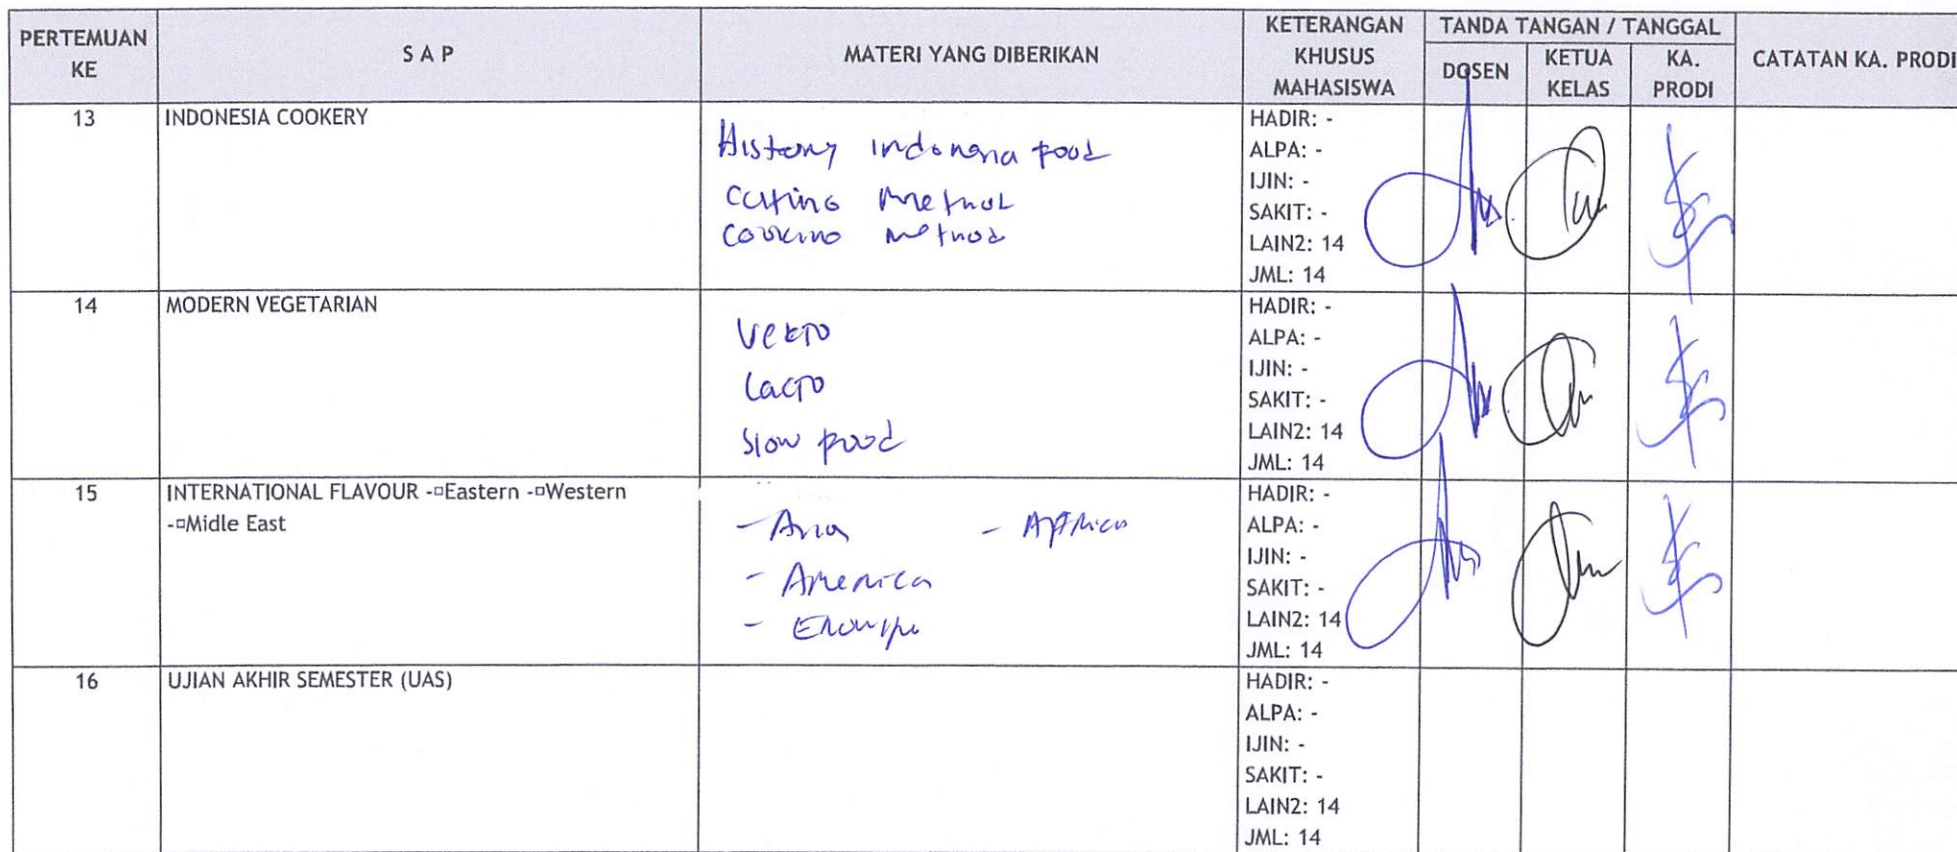 PERTEMUAN KE
S A P
MATERI YANG DIBERIKAN
KETERANGAN KHUSUS MAHASISWA
TANDA TANGAN / TANGGAL
DOSEN
KETUA KELAS
KA. PRODI
CATATAN KA. PRODI
13
INDONESIA COOKERY
History indonesia food
Cutting Method
Cooking method
HADIR: -
ALPA: -
IJIN: -
SAKIT: -
LAIN2: 14
JML: 14
14
MODERN VEGETARIAN
Lacto
Slow food
HADIR: -
ALPA: -
IJIN: -
SAKIT: -
LAIN2: 14
JML: 14
15
INTERNATIONAL FLAVOUR -▫Eastern -▫Western
-▫Midle East
- Asia - Africa
- America
-
HADIR: -
ALPA: -
IJIN: -
SAKIT: -
LAIN2: 14
JML: 14
16
UJIAN AKHIR SEMESTER (UAS)
HADIR: -
ALPA: -
IJIN: -
SAKIT: -
LAIN2: 14
JML: 14